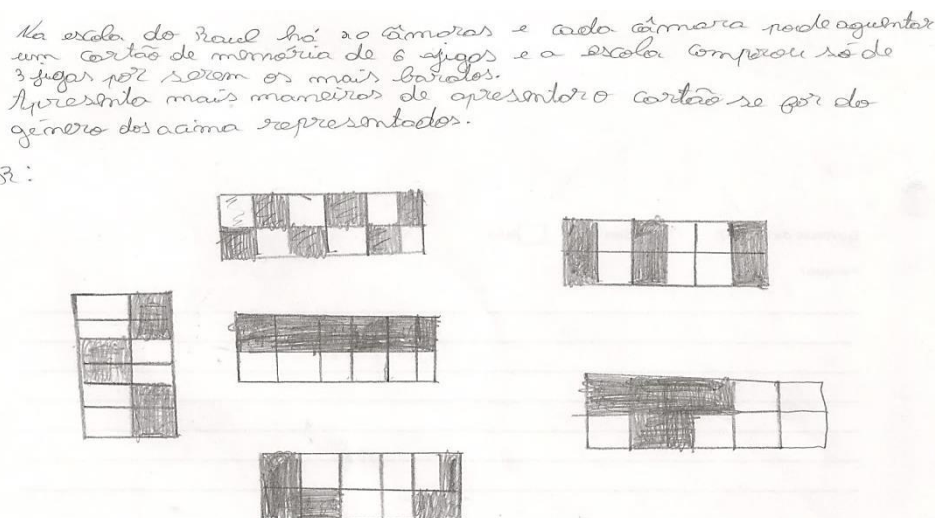 Na escola do Raul há 20 câmaras e cada câmara pode aguentar
um cartão de memória de 6 gigas e a escola comprou só de
3 gigas por serem os mais baratos.
Apresenta mais maneiras de apresentar o cartão se for do
género dos acima representados.
R: